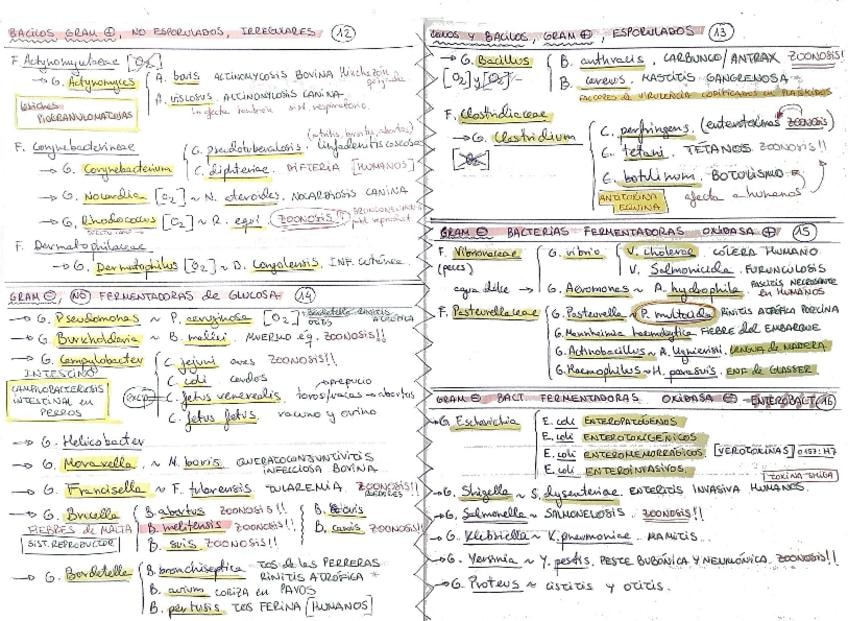 BACILOS GRAM ⊕, NO ESPORULADOS, IRREGULARES (12)
F. Actynomycaceae [O2]
→ G. Actynomyces
A. bovis ACTINOMICOSIS BOVINA
A. viscosus. ACTINOMICOSIS CANINA.
PIOGRANULOMATOSAS
F. Corynebacterineae
→ G. Corynebacterium
C. pseudotuberculosis. linfadenitis caseosa
C. diphteriae. DIFTERIA [HUMANOS]
→ G. Nocardia [O2] ~ N. steroides. NOCARDIOSIS CANINA
→ G. Rhodococcus [O2] ~ R. equi. ZOONOSIS
F. Dermatophilaceae
→ G. Dermatophilus [O2] ~ D. congolensis. INF. cutánea.
GRAM ⊖, NO FERMENTADORAS de GLUCOSA (14)
→ G. Pseudomonas ~ P. aeruginosa [O2]
→ G. Burkholderia ~ B. mallei. MUERMO eq. ZOONOSIS!!
→ G. Campylobacter
INTESTINO
CAMPILOBACTERIOSIS
INTESTINAL en
PERROS
C. jejuni aves ZOONOSIS!!
C. coli cerdos
C. fetus venerealis toros/vacas → abortos
→ prepucio
C. fetus fetus vacuno y ovino
→ G. Helicobacter
→ G. Moraxella ~ M. bovis QUERATOCONJUNTIVITIS
INFECCIOSA BOVINA.
→ G. Francisella ~ F. tularensis TULAREMIA ZOONOSIS!!
→ G. Brucella
FIEBRES de MALTA
SIST. REPRODUCTOR
B. abortus ZOONOSIS!!
B. melitensis ZOONOSIS!!
B. suis ZOONOSIS!!
B. canis ZOONOSIS!!
→ G. Bordetella
B. bronchiseptica TOS de las PERRERAS
RINITIS ATRÓFICA
B. avium CORIZA en PAVOS
B. pertusis TOS FERINA [HUMANOS]
COCOS Y BACILOS, GRAM ⊕, ESPORULADOS (13)
→ G. Bacillus
[O2] y [O2]
B. anthracis. CARBUNCO/ANTRAX ZOONOSIS!
B. cereus. MASTITIS GANGRENOSA
FACTORES de VIRULENCIA CODIFICADOS en PLASMIDOS
F. Clostridiaceae
→ G. Clostridium
[O2]
C. perfringens. (enterotoxinas ZOONOSIS)
C. tetani. TETANOS ZOONOSIS!!
C. botulinum. BOTULISMO
ANTITOXINA
EQUINA
afecta a humanos
GRAM ⊖ BACTERIAS FERMENTADORAS OXIDASA ⊕ (15)
F. Vibrionaceae
(peces)
G. vibrio
V. cholerae. CÓLERA HUMANO
V. Salmonicida. FURUNCULOSIS
agua dulce → G. Aeromones ~ A. hydophila
FASCITIS NECROSANTE
en HUMANOS
F. Pasteurellaceae
G. Pasteurella ~ P. multocida RINITIS ATRÓFICA PORCINA
G. Mannheimia haemolytica FIEBRE del EMBARQUE
G. Actinobacillus ~ A. lignieresii. LENGUA de MADERA
G. Haemophilus ~ H. parasuis. ENF. de GLASSER
GRAM ⊖ BACT FERMENTADORAS OXIDASA ⊖ - ENTEROBACT (16)
→ G. Escherichia
E. coli ENTEROPATÓGENOS
E. coli ENTEROTOXIGÉNICOS
E. coli ENTEROHEMORRÁGICOS [VEROTOXINAS] O157:H7
E. coli ENTEROINVASIVOS.
TOXINA SHIGA
→ G. Shigella ~ S. dysenteriae. ENTERITIS INVASIVA HUMANOS.
→ G. Salmonella ~ SALMONELOSIS. ZOONOSIS!!
→ G. Klebsiella ~ K. pneumoniae. MAMITIS.
→ G. Yersinia ~ Y. pestis. PESTE BUBÓNICA Y NEUMÓNICA. ZOONOSIS!!
→ G. Proteus ~ cistitis y otitis.